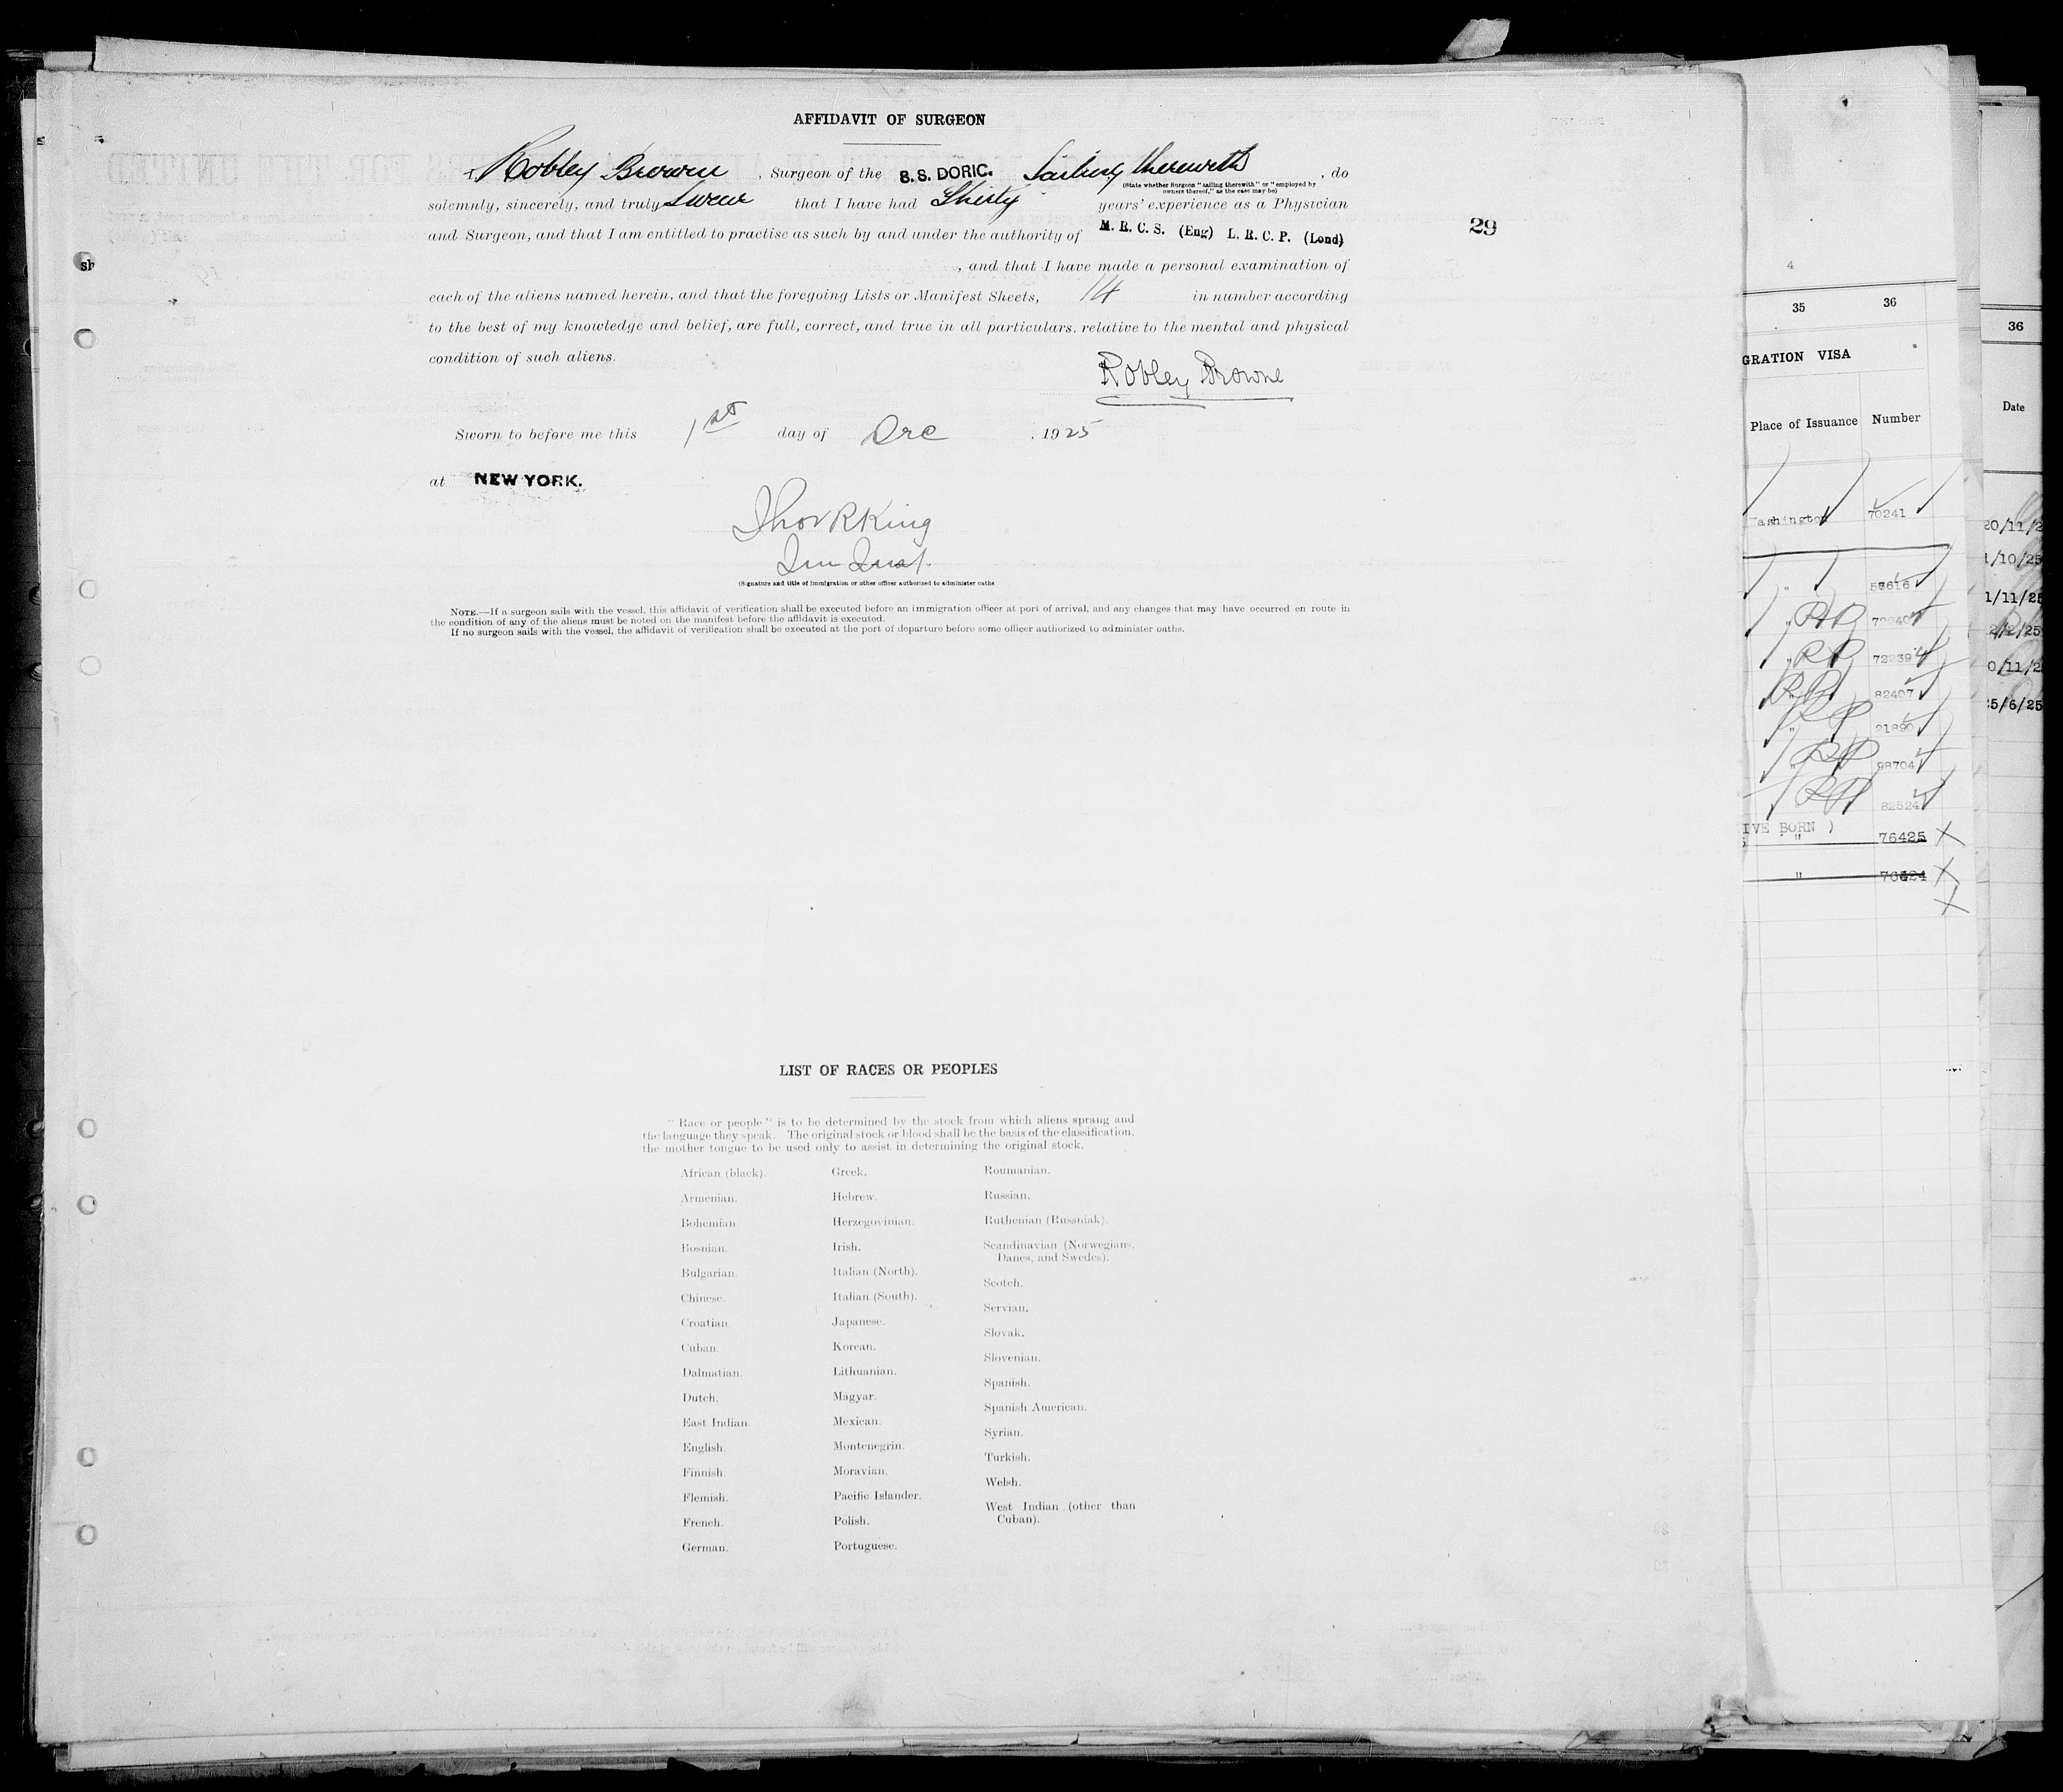 AFFIDAVIT OF SURGEON
I, Robley Browne, Surgeon of the S.S. DORIC. Sailing therewith, do
(State whether Surgeon "sailing therewith" or "employed by
owners thereof," as the case may be)
solemnly, sincerely, and truly Swear that I have had Thirty years' experience as a Physician
29
and Surgeon, and that I am entitled to practise as such by and under the authority of M. R. C. S. (Eng) L. R. C. P. (Lond)
sh
, and that I have made a personal examination of
each of the aliens named herein, and that the foregoing Lists or Manifest Sheets, 14 in number according
to the best of my knowledge and belief, are full, correct, and true in all particulars, relative to the mental and physical
condition of such aliens.
Robley Browne
Sworn to before me this 1st day of Dec, 1925
at NEW YORK.
Thos R King
Imm Insp.
(Signature and title of immigration or other officer authorized to administer oaths
NOTE.—If a surgeon sails with the vessel, this affidavit of verification shall be executed before an immigration officer at port of arrival, and any changes that may have occurred en route in
the condition of any of the aliens must be noted on the manifest before the affidavit is executed.
If no surgeon sails with the vessel, the affidavit of verification shall be executed at the port of departure before some officer authorized to administer oaths.
LIST OF RACES OR PEOPLES
"Race or people" is to be determined by the stock from which aliens sprang and
the language they speak. The original stock or blood shall be the basis of the classification,
the mother tongue to be used only to assist in determining the original stock.
African (black).
Armenian.
Bohemian.
Bosnian.
Bulgarian.
Chinese.
Croatian.
Cuban.
Dalmatian.
Dutch.
East Indian.
English.
Finnish.
Flemish.
French.
German.
Greek.
Hebrew.
Herzegovinian.
Irish.
Italian (North).
Italian (South).
Japanese.
Korean.
Lithuanian.
Magyar.
Mexican.
Montenegrin.
Moravian.
Pacific Islander.
Polish.
Portuguese.
Roumanian.
Russian.
Ruthenian (Russniak).
Scandinavian (Norwegians,
Danes, and Swedes).
Scotch.
Servian.
Slovak.
Slovenian.
Spanish.
Spanish American.
Syrian.
Turkish.
Welsh.
West Indian (other than
Cuban).
4
35 36
GRATION VISA
Place of Issuance Number
Washington 70241
"
" RP
" RP 72239
" RP 82407
" RP
" RP 98704
" RP 82524
IVE BORN )
" 76425
"
36
Date
20/11/2
1/10/25
1/11/25
0/11/2
5/6/25